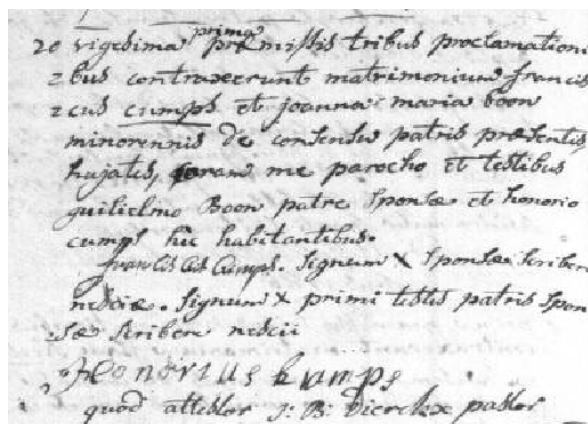 20 vigesima prima præmissis tribus proclamationi
bus contraxerunt matrimonium francis
cus cumps et joanna maria boon
minorennis de consensu patris præsentis
hujatis, coram me parocho et testibus
guilielmo Boon patre sponsæ et honorio
cumps hic habitantibus.
franciscus Cumps. Signum X sponsæ scribere
nesciæ. Signum X primi testis patris spon
sæ scribere nescii
Honorius kumps
quod attestor J: B: Dierckx pastor